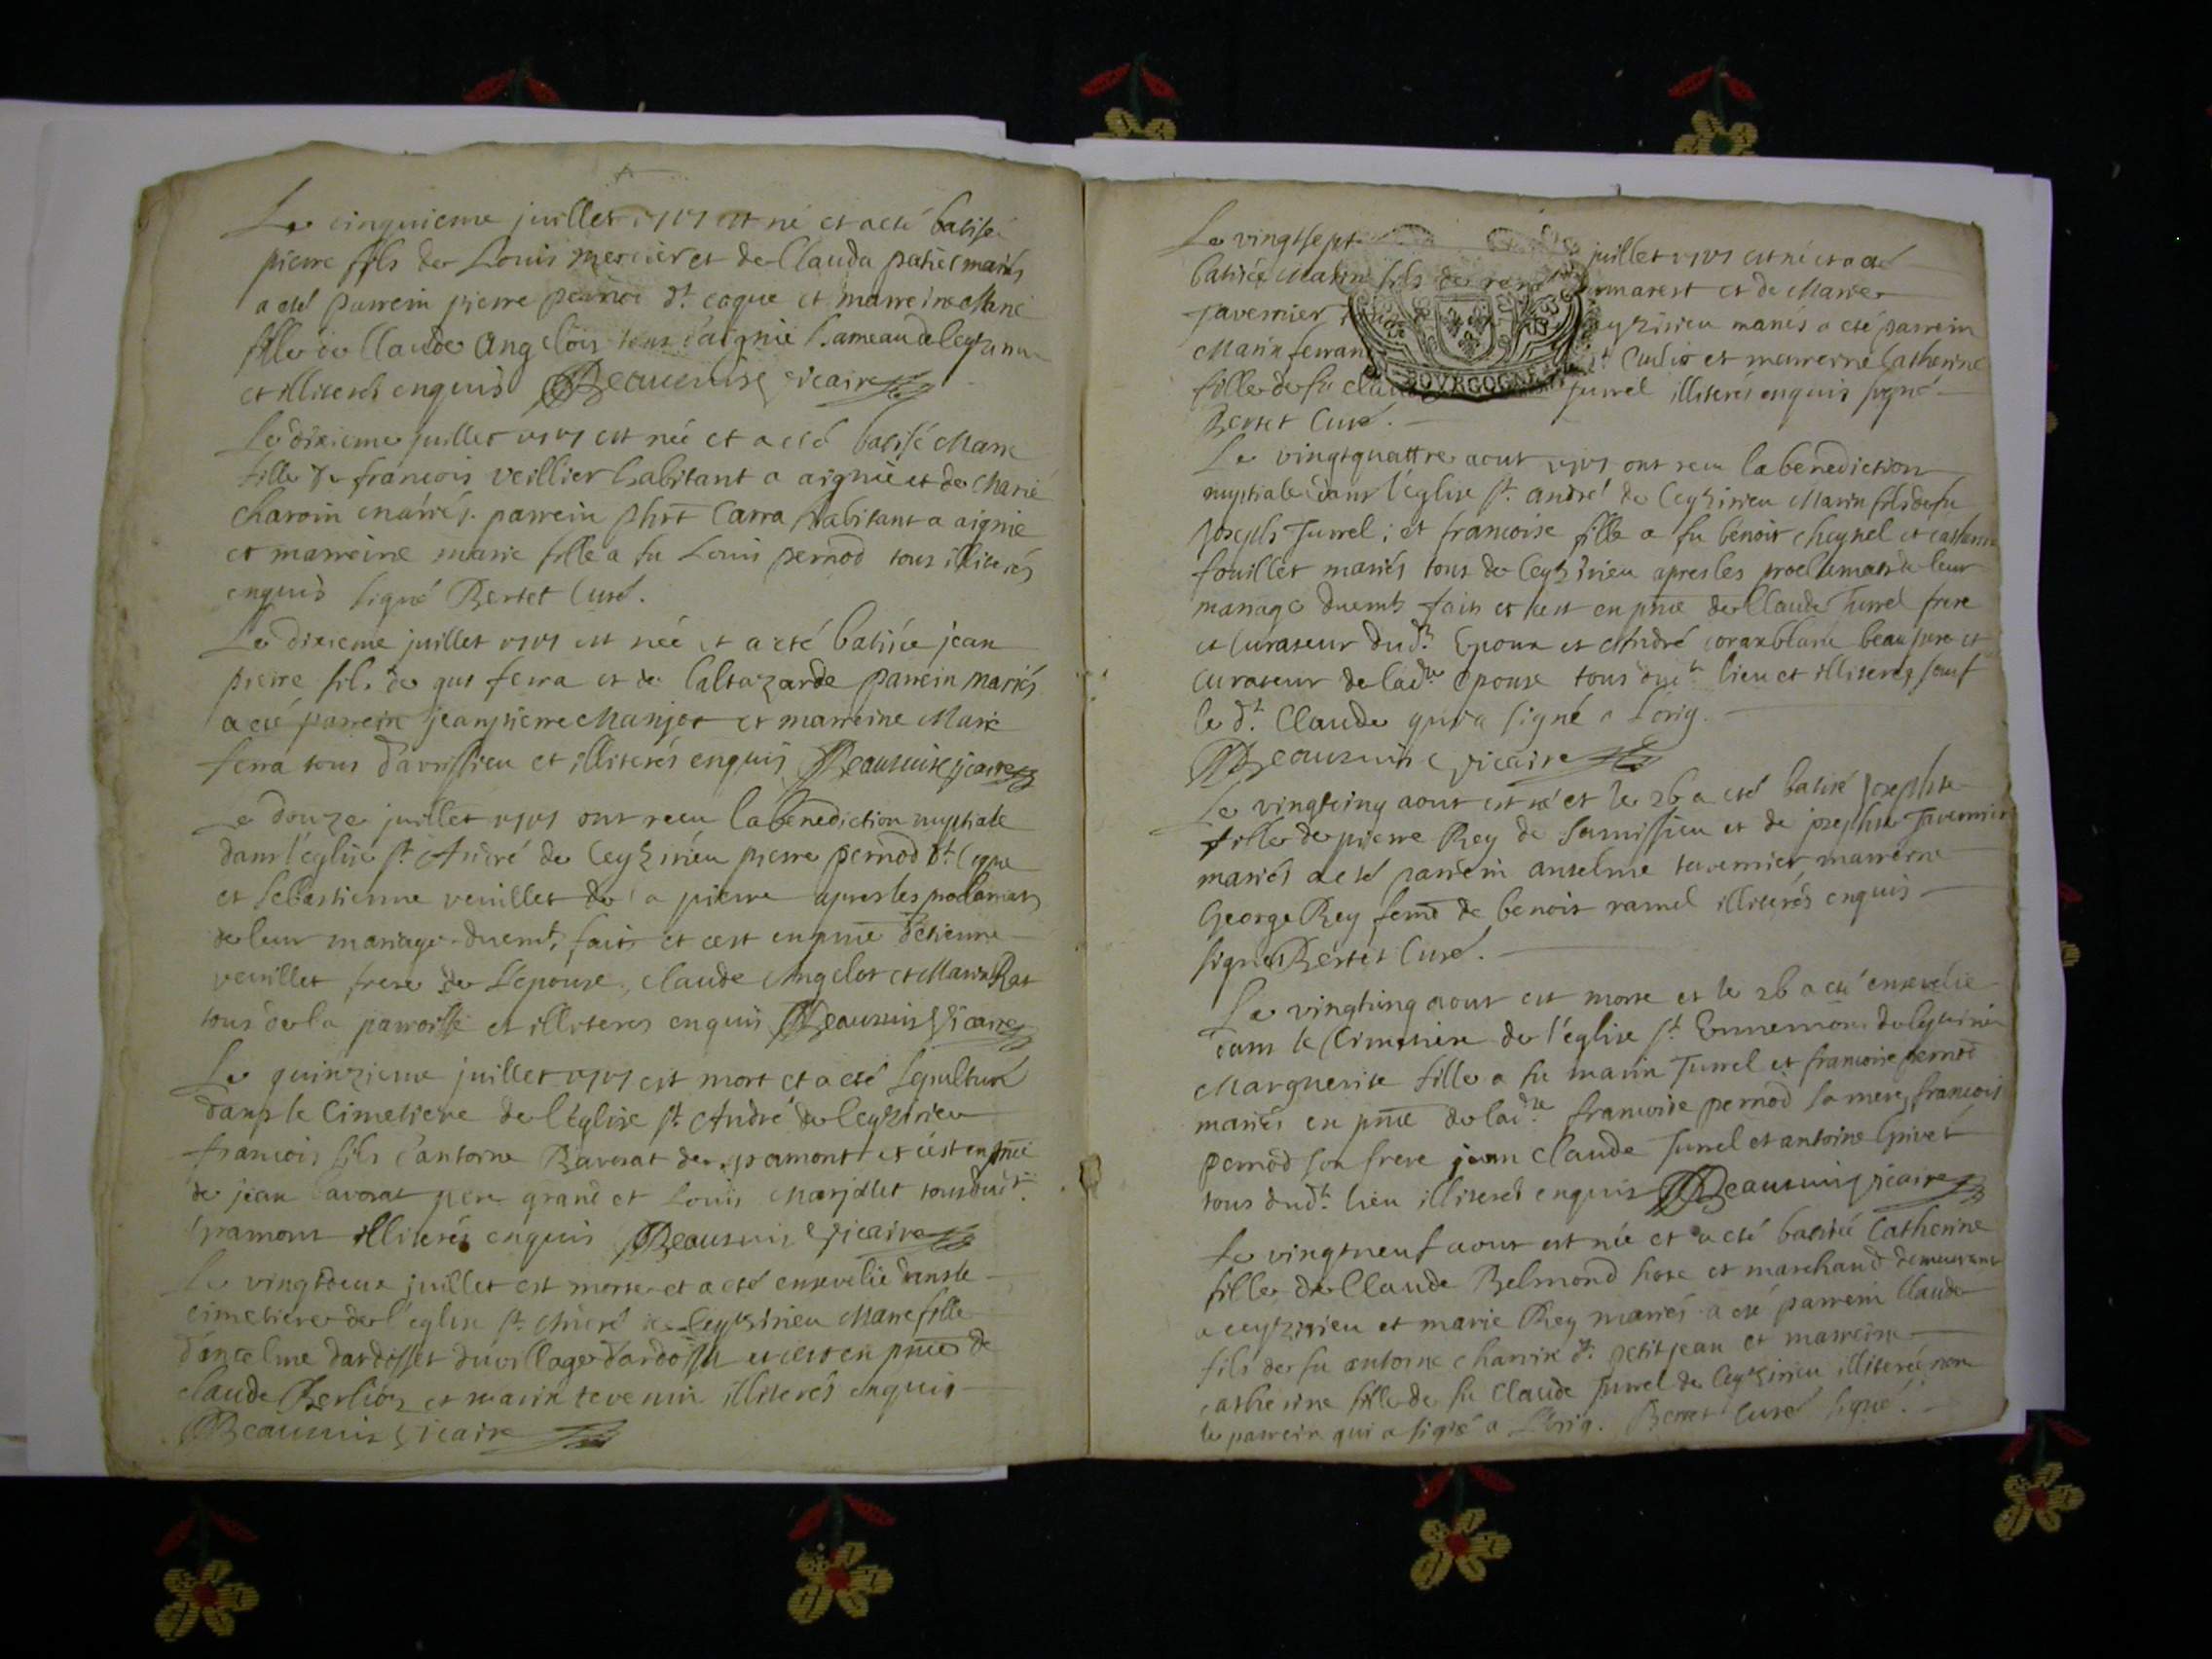 Le cinquieme juillet 1757 est né et a eté batisé
pierre fils de Louis mercier et de Clauda patiet mariés
a eté parrein pierre pernod dt coque et marreine Marie
fille de Claude Angelois tous d'aignie hameau de
et illiterés enquis Beausuire vicaire
Le dixieme juillet 1757 est née et a eté batisé Marie
fille de francois veillier habitant a aignie et de Marie
charvin mariés. parrein phirt Carra habitant a aignie
et marreine marie fille a fu Louis pernod tous illiterés
enquis signé Bertet Curé.
Le dixieme juillet 1757 est née et a eté batisée jean
pierre fils de gus ferra et de baltazarde parrein mariés
a eté parrein jeanpierre Manjot et marreine Marie
ferra tous d'avrissieu et illiterés enquis Beausuire vicaire
Le douze juillet 1757 ont recu la benediction nuptiale
dans l'église St. André de Ceyzirieu pierre pernod dt Coque
et Sebastienne veuillet de a pierre apres les proclamats
de leur mariage duemt. faits et c'est en pnce d'étienne
veuillet frere de L'epouse, claude Angelot et Marin Rat
tous de la parroisse et illiteres enquis Beausuire vicaire
Le quinzieme juillet 1757 est mort et a eté sepulturé
dans le Cimetiere de l'église St. André de Ceyzirieu
francois fils d'antoine Bavorat de gramont et c'est en pnce
de jean Bavorat pere grand et Louis Marjollet tous dudt.
gramont illiterés enquis Beausuire vicaire
Le vingtdeux juillet est morte et a eté ensevelie dans le
cimetiere de l'église St. André de Ceyzirieu Marie fille
d'ancelme dardosset du village d'ardosset et c'est en pnce de
claude Berlioz et marin tevenin illiterés enquis
Beausuire vicaire
Le vingtsept juillet 1757 est né et a eté
batisée Marin fils de rené marest et de Marie
Tavernier Ceyzirieu mariés a eté parrein
Marin ferrand dt et marreine Catherine
fille de fu claude Turrel illiterés enquis signé
Bertet Curé.
Le vingtquattre aout 1757 ont recu la benediction
nuptiale dans l'église St. andré de Ceyzirieu Marin fils de fu
Joseph Turrel; et francoise fille a fu benoit cheynel et catherine
fouillet mariés tous de Ceyzirieu apres les proclamats de leur
mariage duemt faits et c'est en pnce de Claude Turrel frere
et Curateur dudt. Epoux et André beaupere et
curateur de ladte epouse tous dudt. lieu et illiterés sauf
le dt. Claude qui a signé a Lorig.
Beausuire vicaire
Le vingtcinq aout est né et le 26 a eté batisé Josephte
fille de pierre Rey de Savrissieu et de josephte Tavernier
mariés a eté parrein anselme tavernier marreine
George Rey feme de benoit ramel illiterés enquis
signé Bertet Curé.
Le vingtcinq aout est morte et le 26 a eté ensevelie
dans le Cimetiere de l'église St. Ennemond de
Marguerite fille a fu marin Turrel et francoise pernod
mariés en pnce de ladte. francoise pernod sa mere, francois
pernod son frere jean claude Turrel et antoine Grivet
tous dudt. lieu illiterés enquis Beausuire vicaire
Le vingtneuf aout est née et a eté batisée Catherine
fille de Claude Belmond hote et marchand demeurant
a ceyzirieu et marie Rey mariés a eté parrein Claude
fils de fu antoine charvin dt. petitjean et marreine
catherine fille de fu Claude Turrel de Ceyzirieu illiterée non
le parrein qui a signé a L'orig. Bertet Curé signé.
BOURGOGNE